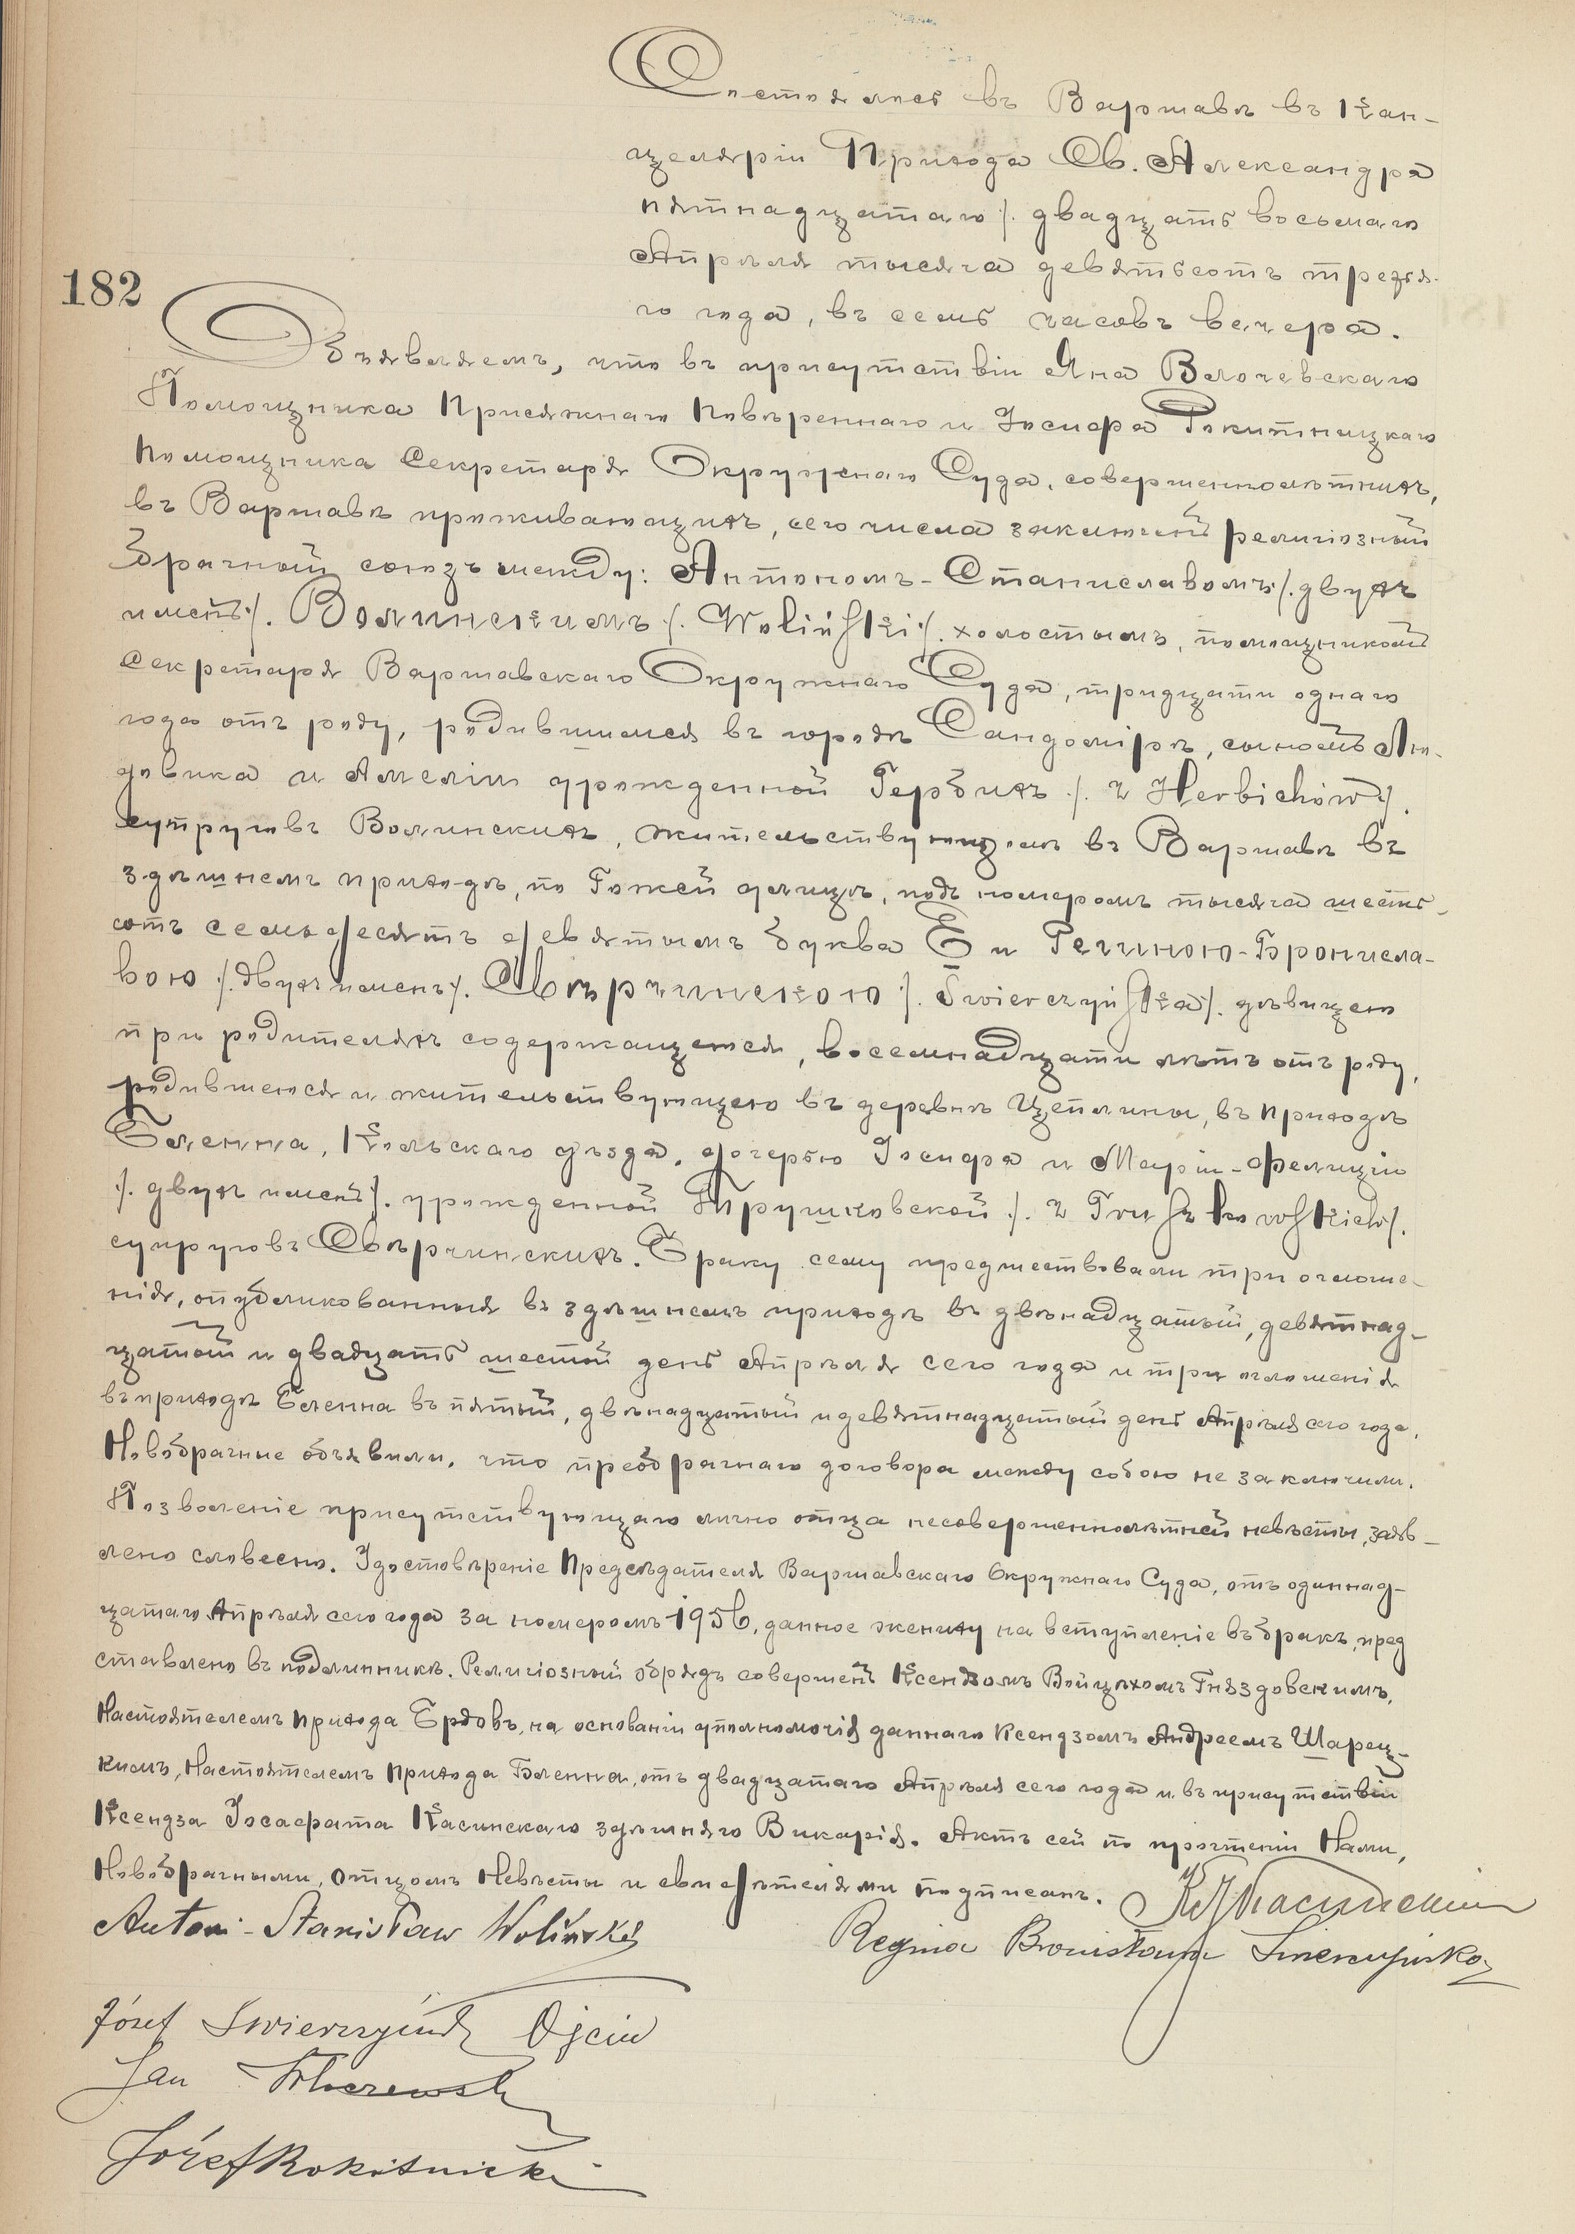 Состоялось въ Варшавѣ въ Кан-
целяріи Прихода Св. Александра
пятнадцатаго /. двадцать восьмаго
Апрѣля тысяча девятьсотъ третья-
го года, въ семь часовъ вечера.
182
Объявляемъ, что въ присутствіи Яна Влочевскаго
Помощника Присяжнаго Повѣреннаго и Іосифа Рокитницкаго
Помощника Секретаря Окружнаго Суда, совершеннолѣтнихъ,
въ Варшавѣ проживающихъ, сего числа заключенъ религіозный
брачный союзъ между: Антономъ-Станиславомъ /. двухъ
именъ /. Волинскимъ /. Woliński /. холостымъ, помощникомъ
Секретаря Варшавскаго Окружнаго Суда, тридцати однаго
года отъ роду, родившимся въ городѣ Сандомірѣ, сыномъ Лю-
довика и Амеліи урожденной Гербихъ /. z Herbichów /.
супруговъ Волинскихъ, жительствующимъ въ Варшавѣ въ
здѣшнемъ приходѣ, по Гожей улицѣ, подъ номеромъ тысяча шесть-
сотъ семьдесятъ девятымъ буква Е и Региною-Брониसла-
вою /. двухъ именъ /. Свѣрчинскою /. Świerczyńską /. дѣвицею
при родителяхъ содержащеюся, восемнадцати лѣтъ отъ роду,
родившеюся и жительствующею въ деревнѣ Цеплины, въ приходѣ
Бленна, Кольскаго уѣзда, дочерью Іосифа и Маріи-Фелиціи
/. двухъ именъ /. урожденной Трушковской /. z Truszkowskich /.
супруговъ Свѣрчинскихъ. Браку сему предшествовали три оглаше-
нія, опубликованныя въ здѣшнемъ приходѣ въ двѣнадцатый, девятнад-
цатый и двадцать шестой день Апрѣля сего года и три оглашенія
въ приходѣ Бленна въ пятый, двѣнадцатый и девятнадцатый день Апрѣля сего года.
Новобрачные объявили, что предбрачнаго договора между собою не заключили.
Позволеніе присутствующаго лично отца несовершеннолѣтней невѣсты, заяв-
лено словесно. Удостовѣреніе Предсѣдателя Варшавскаго Окружнаго Суда, отъ одиннад-
цатаго Апрѣля сего года за номеромъ 1956, данное жениху на вступленіе въ бракъ, пред
ставлено въ подлинникѣ. Религіозный обрядъ совершенъ Ксендзомъ Войцѣхомъ Гнѣздовскимъ,
Настоятелемъ Прихода Брдовъ, на основаніи уполномочія даннаго Ксендзомъ Андреемъ Шарец-
кимъ, Настоятелемъ Прихода Бленна, отъ двадцатаго Апрѣля сего года и въ присутствіи
Ксендза Іосафата Касинскаго здѣшняго Викарія. Актъ сей по прочтеніи Нами,
Новобрачными, Отцомъ Невѣсты и свидѣтелями подписанъ.
Antoni-Stanisław Woliński
Regina Bronisława Świerczyńska
Józef Świerczyński Ojciec
Jan Włoczewski
Józef Rokitnicki